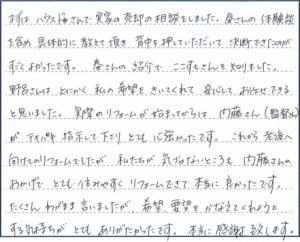 まずは ハウスドゥさんで 実家の売却の相談をしました。 奏さんの 体験談
を含め 具体的に 教えて頂き 背中を押していただいて 決断できたのが
すごくよかったです。 奏さんの 紹介で ここすもさんを 知りました。
野呂さんは とにかく 私の希望を きいてくれて 安心して お任せできる
と思いました。 実際の リフォームが 始まってからは 内藤さん(監督)
が テキパキ 指示して下さり とても 心強かったです。 これから 老後へ
向けてのリフォームでしたが 私たちが 気づかないところも 内藤さんの
おかげで とても 住みやすく リフォームできて 本当に 良かったです。
たくさん わがまま 言いましたが、 希望、要望を かなえてくれようと
する気持ちが とても ありがたかったです。 本当に 感謝 致します。